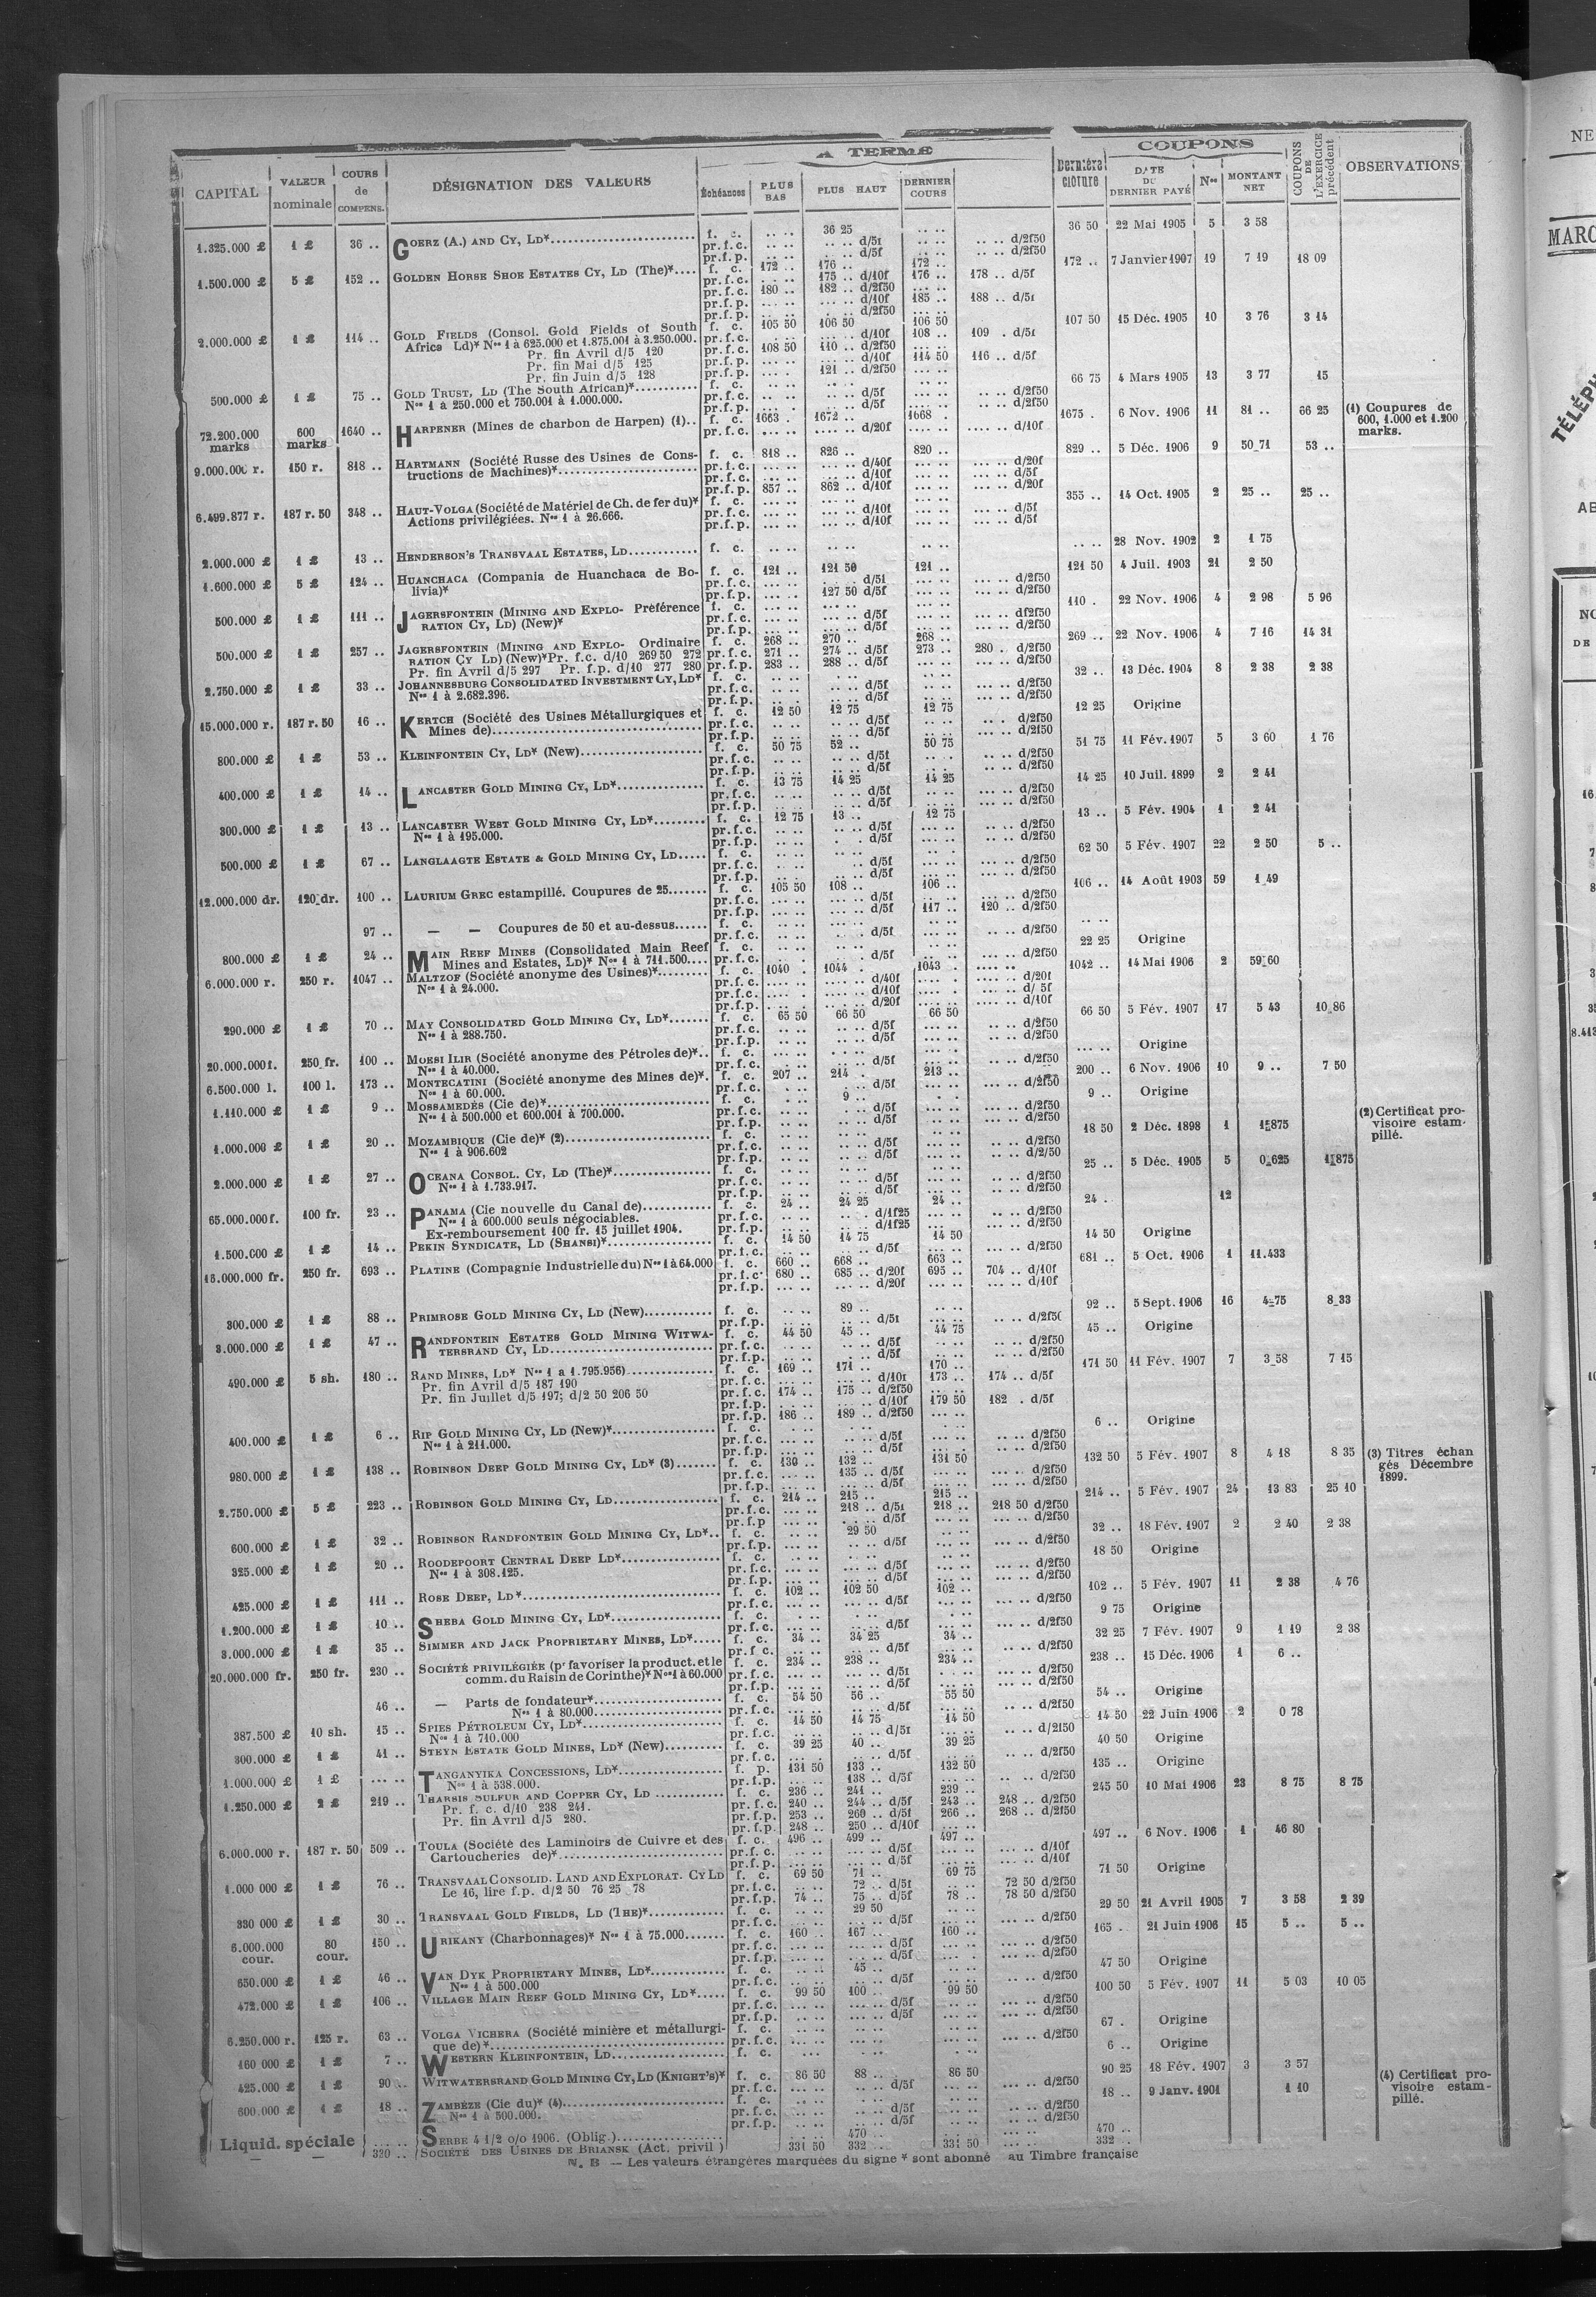 A TERME
COUPONS
CAPITAL
VALEUR nominale
COURS de COMPENS.
DÉSIGNATION DES VALEURS
Échéances
PLUS BAS
PLUS HAUT
DERNIER COURS
Dernière clôture
DATE DU DERNIER PAYÉ
Nos
MONTANT NET
COUPONS DE L'EXERCICE précédent
OBSERVATIONS
1.325.000 £ 1 £ 36 .. GOERZ (A.) AND CY, LD* f. c. .. .. 36 25 .. .. 36 50 22 Mai 1905 5 3 58
pr.f.c. .. .. .. .. d/5f .. .. d/2f50
pr.f.p. .. .. .. .. d/5f .. .. d/2f50
1.500.000 £ 5 £ 152 .. GOLDEN HORSE SHOE ESTATES CY, LD (The)* f. c. 172 .. 176 .. 172 .. 172 .. 7 Janvier 1907 19 7 19 18 09
pr.f.c. 175 .. d/10f 176 .. 178 .. d/5f
pr.f.c. 180 .. 182 .. d/2f50
pr.f.p. d/10f 185 .. 188 .. d/5f
pr.f.p. d/2f50
2.000.000 £ 1 £ 114 .. GOLD FIELDS (Consol. Gold Fields of South f. c. 105 50 106 50 106 50 107 50 15 Déc. 1905 10 3 76 3 14
Africa Ld)* Nos 1 à 625.000 et 1.875.001 à 3.250.000. pr.f.c. d/10f 108 .. 109 . d/5f
Pr. fin Avril d/5 120 pr.f.c. 108 50 110 .. d/2f50
Pr. fin Mai d/5 125 pr.f.p. d/10f 114 50 116 .. d/5f
Pr. fin Juin d/5 128 pr.f.p. 121 .. d/2f50
500.000 £ 1 £ 75 .. GOLD TRUST, LD (The South African)* f. c. 66 75 4 Mars 1905 13 3 77 15
Nos 1 à 250.000 et 750.001 à 1.000.000. pr.f.c. d/5f d/2f50
pr.f.p. d/5f d/2f50
72.200.000 marks 600 marks 1640 .. HARPENER (Mines de charbon de Harpen) (1).. f. c. 1663 . 1672 .. 1668 . 1675 . 6 Nov. 1906 11 81 .. 66 25 (1) Coupures de 600, 1.000 et 1.200 marks.
pr.f.c. d/20f d/10f
9.000.000 r. 150 r. 818 .. HARTMANN (Société Russe des Usines de Cons- f. c. 818 .. 826 .. 820 .. 829 .. 5 Déc. 1906 9 50 71 53 ..
tructions de Machines)* pr.f.c. d/40f d/20f
pr.f.c. d/10f d/5f
pr.f.p. 857 .. 862 .. d/10f d/20f
6.499.877 r. 187 r. 50 348 .. HAUT-VOLGA (Société de Matériel de Ch. de fer du)* f. c. 355 .. 14 Oct. 1905 2 25 .. 25 ..
Actions privilégiées. Nos 1 à 26.666. pr.f.c. d/10f d/5f
pr.f.p. d/10f d/5f
2.000.000 £ 1 £ 13 .. HENDERSON'S TRANSVAAL ESTATES, LD f. c. .. .. .. .. .. .. .. .. 28 Nov. 1902 2 1 75
1.600.000 £ 5 £ 124 .. HUANCHACA (Compania de Huanchaca de Bo- f. c. 121 .. 121 50 121 .. 121 50 4 Juil. 1903 21 2 50
livia)* pr.f.c. d/5f d/2f50
pr.f.p. 127 50 d/5f d/2f50
500.000 £ 1 £ 111 .. JAGERSFONTEIN (MINING AND EXPLO- Préférence f. c. 110 . 22 Nov. 1906 4 2 98 5 96
RATION CY, LD) (New)* pr.f.c. d/5f d/2f50
pr.f.p. d/5f d/2f50
500.000 £ 1 £ 257 .. JAGERSFONTEIN (MINING AND EXPLO- Ordinaire f. c. 268 .. 270 .. 268 .. 269 .. 22 Nov. 1906 4 7 16 14 31
RATION CY LD) (New)* Pr. f.c. d/10 269 50 272 pr.f.c. 271 .. 274 .. d/5f 273 .. 280 . d/2f50
Pr. fin Avril d/5 297 Pr. f.p. d/10 277 280 pr.f.p. 283 .. 288 .. d/5f d/2f50
2.750.000 £ 1 £ 33 .. JOHANNESBURG CONSOLIDATED INVESTMENT CY, LD* f. c. 32 .. 13 Déc. 1904 8 2 38 2 38
Nos 1 à 2.682.396. pr.f.c. d/5f d/2f50
pr.f.p. d/5f d/2f50
15.000.000 r. 187 r. 50 16 .. KERTCH (Société des Usines Métallurgiques et f. c. 12 50 12 75 12 75 12 25 Origine
Mines de) pr.f.c. d/5f d/2f50
pr.f.p. d/5f d/2f50
800.000 £ 1 £ 53 .. KLEINFONTEIN CY, LD* (New) f. c. 50 75 52 .. 50 75 51 75 11 Fév. 1907 5 3 60 1 76
pr.f.c. d/5f d/2f50
pr.f.p. d/5f d/2f50
400.000 £ 1 £ 14 .. LANCASTER GOLD MINING CY, LD* f. c. 13 75 14 25 14 25 14 25 10 Juil. 1899 2 2 41
pr.f.c. d/5f d/2f50
pr.f.p. d/5f d/2f50
300.000 £ 1 £ 13 .. LANCASTER WEST GOLD MINING CY, LD* f. c. 12 75 13 .. 12 75 13 .. 5 Fév. 1904 1 2 41
Nos 1 à 195.000. pr.f.c. d/5f d/2f50
pr.f.p. d/5f d/2f50
500.000 £ 1 £ 67 .. LANGLAAGTE ESTATE & GOLD MINING CY, LD f. c. 62 50 5 Fév. 1907 22 2 50 5 ..
pr.f.c. d/5f d/2f50
pr.f.p. d/5f d/2f50
12.000.000 dr. 120 dr. 100 .. LAURIUM GREC estampillé. Coupures de 25 f. c. 105 50 108 .. 106 .. 106 .. 14 Août 1903 59 1 49
pr.f.c. d/5f d/2f50
pr.f.p. d/5f 117 .. 120 .. d/2f50
97 .. — — Coupures de 50 et au-dessus f. c. .. ..
pr.f.c. d/5f d/2f50
800.000 £ 1 £ 24 .. MAIN REEF MINES (Consolidated Main Reef f. c. 22 25 Origine
Mines and Estates, LD)* Nos 1 à 711.500 pr.f.c. d/5f d/2f50
6.000.000 r. 250 r. 1047 .. MALTZOF (Société anonyme des Usines)* f. c. 1040 . 1044 . 1043 . 1042 .. 14 Mai 1906 2 59 60
Nos 1 à 24.000. pr.f.c. d/40f d/20f
pr.f.c. d/10f d/ 5f
pr.f.p. d/20f d/10f
290.000 £ 1 £ 70 .. MAY CONSOLIDATED GOLD MINING CY, LD* f. c. 65 50 66 50 66 50 66 50 5 Fév. 1907 17 5 43 10 86
Nos 1 à 288.750. pr.f.c. d/5f d/2f50
pr.f.p. d/5f d/2f50
20.000.000 f. 250 fr. 100 .. MORSI ILIR (Société anonyme des Pétroles de)*.. f. c. Origine
Nos 1 à 40.000. pr.f.c. d/5f d/2f50
6.500.000 l. 100 l. 173 .. MONTECATINI (Société anonyme des Mines de)*. f. c. 207 .. 214 . 213 .. 200 .. 6 Nov. 1906 10 9 .. 7 50
Nos 1 à 60.000. pr.f.c. d/5f d/2f50
1.110.000 £ 1 £ 9 .. MOSSAMEDÈS (Cie de)* f. c. 9 .. 9 .. Origine
Nos 1 à 500.000 et 600.001 à 700.000. pr.f.c. d/5f d/2f50
pr.f.p. d/5f d/2f50
1.000.000 £ 1 £ 20 .. MOZAMBIQUE (Cie de)* (2) f. c. 18 50 2 Déc. 1898 1 1 875 (2) Certificat provisoire estampillé.
Nos 1 à 906.602 pr.f.c. d/5f d/2f50
pr.f.p. d/5f d/2/50
2.000.000 £ 1 £ 27 .. OCEANA CONSOL. CY, LD (The)* f. c. 25 .. 5 Déc. 1905 5 0 625 1 875
Nos 1 à 1.733.917. pr.f.c. d/5f d/2f50
pr.f.p. d/5f d/2f50
65.000.000 f. 100 fr. 23 .. PANAMA (Cie nouvelle du Canal de) f. c. 24 .. 24 25 24 .. 24 . 12
Nos 1 à 600.000 seuls négociables. pr.f.c. d/1f25 d/2f50
Ex-remboursement 100 fr. 15 juillet 1904. pr.f.p. d/1f25 d/2f50
1.500.000 £ 1 £ 14 .. PEKIN SYNDICATE, LD (SHANSI)* f. c. 14 50 14 75 14 50 14 50 Origine
pr.f.c. d/5f d/2f50
16.000.000 fr. 250 fr. 693 .. PLATINE (Compagnie Industrielle du) Nos 1 à 64.000 f. c. 660 .. 668 .. 663 .. 681 .. 5 Oct. 1906 1 11.433
pr.f.c. 680 .. 685 .. d/20f 695 .. 704 .. d/10f
pr.f.p. d/20f d/10f
300.000 £ 1 £ 88 .. PRIMROSE GOLD MINING CY, LD (New) f. c. 89 .. 92 .. 5 Sept. 1906 16 4 75 8 33
pr.f.p. d/5f
3.000.000 £ 1 £ 47 .. RANDFONTEIN ESTATES GOLD MINING WITWA- f. c. 44 50 45 .. 44 75 45 .. Origine
TERSRAND CY, LD pr.f.c. d/5f d/2f50
pr.f.p. d/5f d/2f50
490.000 £ 5 sh. 180 .. RAND MINES, LD* Nos 1 à 1.795.956) f. c. 169 .. 171 .. 170 .. 171 50 11 Fév. 1907 7 3 58 7 15
Pr. fin Avril d/5 187 190 pr.f.c. d/10f 173 .. 174 .. d/5f
Pr. fin Juillet d/5 197; d/2 50 206 50 pr.f.c. 174 .. 175 .. d/2f50
pr.f.p. d/10f 179 50 182 . d/5f
pr.f.p. 186 .. 189 .. d/2f50
400.000 £ 1 £ 6 .. RIP GOLD MINING CY, LD (New)* f. c. 6 .. Origine
Nos 1 à 211.000. pr.f.c. d/5f d/2f50
pr.f.p. d/5f d/2f50
980.000 £ 1 £ 138 .. ROBINSON DEEP GOLD MINING CY, LD* (3) f. c. 130 .. 132 .. 131 50 132 50 5 Fév. 1907 8 4 18 8 35 (3) Titres échangés Décembre 1899.
pr.f.c. 135 .. d/5f d/2f50
pr.f.p. d/5f d/2f50
2.750.000 £ 5 £ 223 .. ROBINSON GOLD MINING CY, LD f. c. 214 .. 215 .. 215 .. 214 .. 5 Fév. 1907 24 13 83 25 10
pr.f.c. 218 .. d/5f 218 .. 218 50 d/2f50
pr.f.p d/5f d/2f50
600.000 £ 1 £ 32 .. ROBINSON RANDFONTEIN GOLD MINING CY, LD*.. f. c. 29 50 32 .. 18 Fév. 1907 2 2 40 2 38
pr.f.p. d/5f d/2f50
325.000 £ 1 £ 20 .. ROODEPOORT CENTRAL DEEP LD* f. c. 18 50 Origine
Nos 1 à 308.125. pr.f.c. d/5f d/2f50
pr.f.p. d/5f d/2f50
425.000 £ 1 £ 111 .. ROSE DEEP, LD* f. c. 102 .. 102 50 102 .. 102 .. 5 Fév. 1907 11 2 38 4 76
pr.f.c. d/5f d/2f50
1.200.000 £ 1 £ 10 .. SHEBA GOLD MINING CY, LD* f. c. 9 75 Origine
pr.f.c. d/5f d/2f50
3.000.000 £ 1 £ 35 .. SIMMER AND JACK PROPRIETARY MINES, LD* f. c. 34 .. 34 25 34 .. 32 25 7 Fév. 1907 9 1 19 2 38
pr.f.c. d/5f d/2f50
20.000.000 fr. 250 fr. 230 .. SOCIÉTÉ PRIVILÉGIÉE (pr favoriser la product. et le f. c. 234 .. 238 .. 234 .. 238 .. 15 Déc. 1906 1 6 ..
comm. du Raisin de Corinthe)* Nos 1 à 60.000 pr.f.c. d/5f d/2f50
pr.f.p. d/2f50
46 .. — Parts de fondateur* f. c. 54 50 56 .. 55 50 54 .. Origine
Nos 1 à 80.000 pr.f.c. d/5f d/2f50
387.500 £ 10 sh. 15 .. SPIES PÉTROLEUM CY, LD* f. c. 14 50 14 75 14 50 14 50 22 Juin 1906 2 0 78
Nos 1 à 710.000 pr.f.c. d/5f d/2f50
300.000 £ 1 £ 41 .. STEYN ESTATE GOLD MINES, LD* (New) f. c. 39 25 40 .. 39 25 40 50 Origine
pr.f.c. d/5f d/2f50
1.000.000 £ 1 £ .... .. TANGANYIKA CONCESSIONS, LD* f. p. 131 50 133 .. 132 50 135 .. Origine
Nos 1 à 538.000. pr.f.p. 138 .. d/5f d/2f50
1.250.000 £ 2 £ 219 .. THARSIS SULFUR AND COPPER CY, LD f. c. 236 .. 241 .. 239 .. 245 50 10 Mai 1906 23 8 75 8 75
Pr. f. c. d/10 238 241. pr.f.c. 240 .. 244 .. d/5f 243 .. 248 .. d/2f50
Pr. fin Avril d/5 280. pr.f.p. 253 .. 260 .. d/5f 266 .. 268 .. d/2f50
pr.f.p. 248 .. 250 .. d/10f
6.000.000 r. 187 r. 50 509 .. TOULA (Société des Laminoirs de Cuivre et des f. c. 496 .. 499 .. 497 .. 497 .. 6 Nov. 1906 1 46 80
Cartoucheries de)* pr.f.c. d/5f d/10f
pr.f.p. d/5f d/10f
1.000 000 £ 1 £ 76 .. TRANSVAAL CONSOLID. LAND AND EXPLORAT. CY LD f. c. 69 50 71 .. 69 75 71 50 Origine
Le 16, lire f.p. d/2 50 76 25 78 pr.f.c. 72 .. d/5f 72 50 d/2f50
pr.f.p. 74 .. 75 .. d/5f 78 .. 78 50 d/2f50
330 000 £ 1 £ 30 .. TRANSVAAL GOLD FIELDS, LD (THE)* f. c. 29 50 29 50 21 Avril 1905 7 3 58 2 39
pr.f.c. d/5f d/2f50
6.000.000 cour. 80 cour. 150 .. URIKANY (Charbonnages)* Nos 1 à 75.000 f. c. 160 .. 167 .. 160 .. 165 . 21 Juin 1906 15 5 .. 5 ..
pr.f.c. d/5f d/2f50
pr.f.p. d/5f d/2f50
650.000 £ 1 £ 46 .. VAN DYK PROPRIETARY MINES, LD* f. c. 45 .. 47 50 Origine
Nos 1 à 500.000 pr.f.c. d/5f d/2f50
472.000 £ 1 £ 106 .. VILLAGE MAIN REEF GOLD MINING CY, LD* f. c. 99 50 100 .. 99 50 100 50 5 Fév. 1907 11 5 03 10 05
pr.f.c. d/5f d/2f50
pr.f.p. d/5f d/2f50
6.250.000 r. 125 r. 63 .. VOLGA VICHERA (Société minière et métallurgi- f. c. 67 . Origine
que de)* pr.f.c. d/2f50
160 000 £ 1 £ 7 .. WESTERN KLEINFONTEIN, LD f. c. 6 .. Origine
425.000 £ 1 £ 90 .. WITWATERSRAND GOLD MINING CY, LD (KNIGHT'S)* f. c. 86 50 88 .. 86 50 90 25 18 Fév. 1907 3 3 57
pr.f.c. d/5f d/2f50
600.000 £ 1 £ 18 .. ZAMBÈZE (Cie du)* (4) f. c. 18 .. 9 Janv. 1901 1 10 (4) Certificat provisoire estampillé.
Nos 1 à 500.000. pr.f.c. d/5f d/2f50
pr.f.p. d/5f d/2f50
Liquid. spéciale .... .. SERBE 4 1/2 o/o 1906. (Oblig.) 470 .. 470 ..
— — 330 .. SOCIÉTÉ DES USINES DE BRIANSK (Act. privil) 331 50 332 .. 331 50 332 ..
N. B — Les valeurs étrangères marquées du signe * sont abonné au Timbre française
NE
MARC
TÉLÉPH
AB
NO
DE